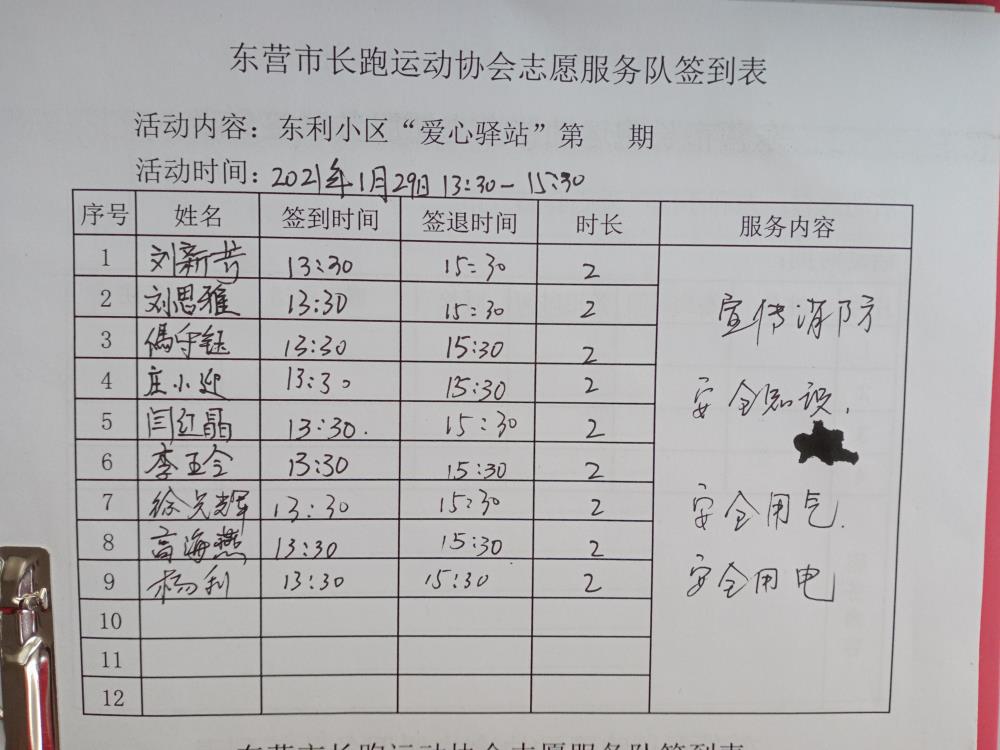 东营市长跑运动协会志愿服务队签到表
活动内容：东利小区“爱心驿站”第 期
活动时间：2021年1月29日 13:30-15:30
序号 姓名 签到时间 签退时间 时长 服务内容
1 刘新芳 13:30 15:30 2
2 刘思雅 13:30 15:30 2
宣传消防
3 守钰 13:30 15:30 2
4 庄小迎 13:30 15:30 2
安全知识，
5 闫红晶 13:30. 15:30 2
6 李玉令 13:30 15:30 2
7 徐光辉 13:30 15:30 2
安全用气.
8 高海燕 13:30 15:30 2
9 杨利 13:30 15:30 2
安全用电
10
11
12
东营市长跑运动协会志愿服务队签到表